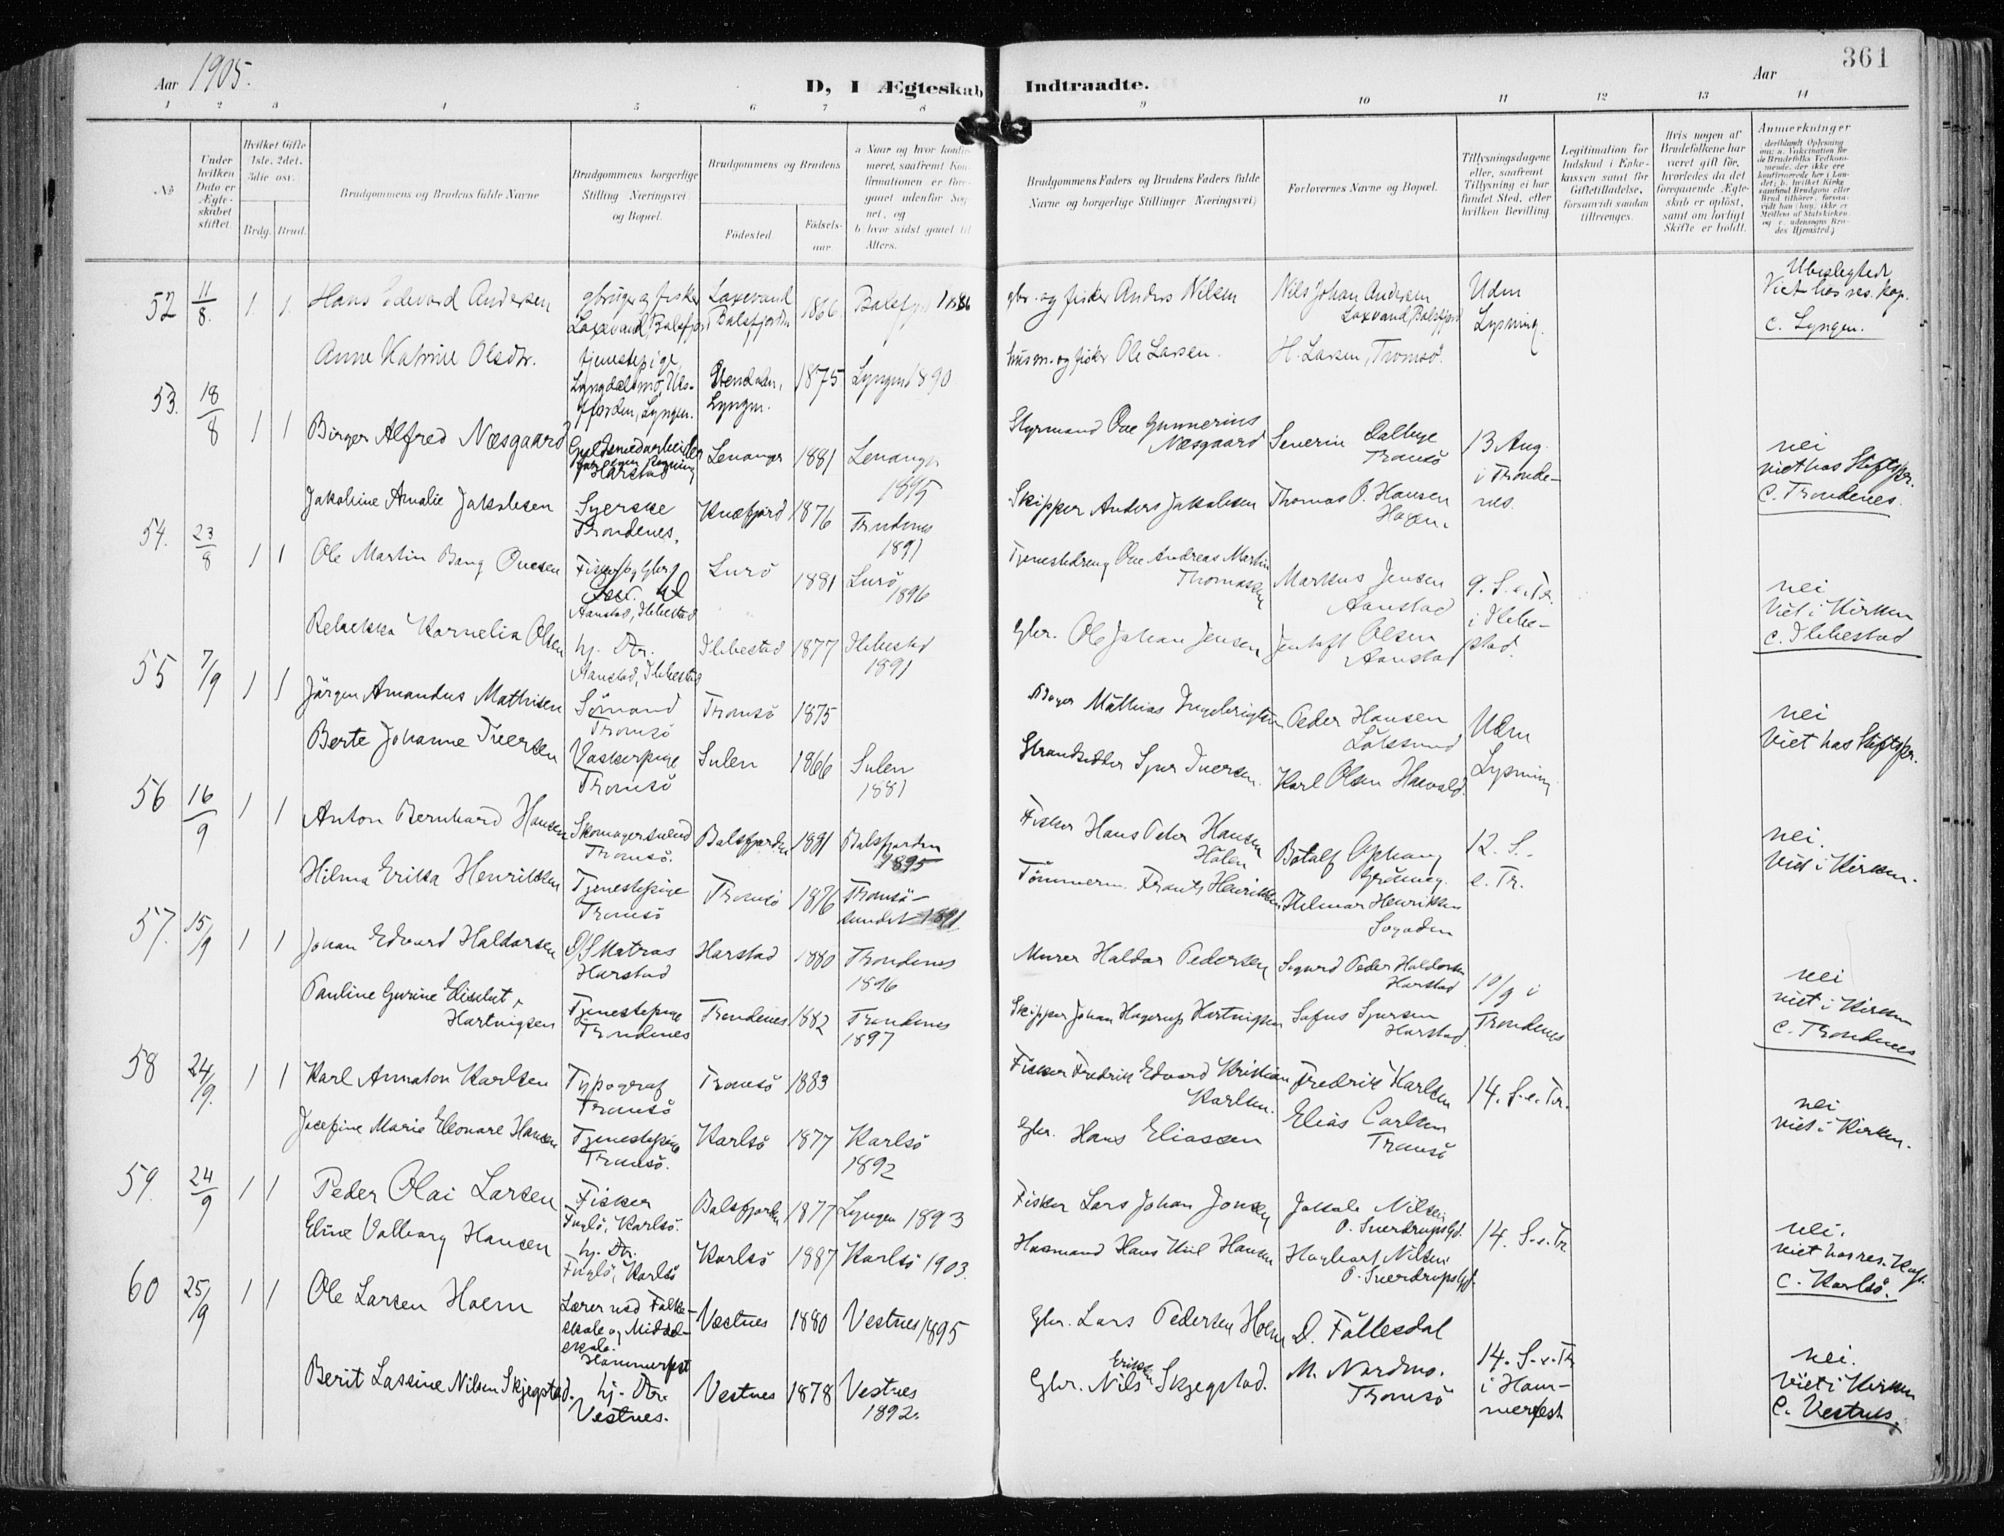 361
Aar 1905.
D, I Ægteskab Indtraadte.
Aar
1 2 3 4 5 6 7 8 9 10 11 12 13 14
No
Under hvilken Dato er Ægteskabet stiftet.
Hvilket Gifte 1ste, 2det, 3die osv.
Brdg. Brud.
Brudgommens og Brudens fulde Navne
Brudgommens borgerlige Stilling (Næringsvei) og Bopæl.
Brudgommens og Brudens
Fødested
Fødsels-aar.
a. Naar og hvor konfirmeret, saafremt Konfirmationen er foregaaet udenfor Sognet, og
b. hvor sidst gaaet til Alters.
Brudgommens Faders og Brudens Faders fulde Navne og borgerlige Stillinger (Næringsvei)
Forlovernes Navne og Bopæl.
Tillysningsdagene eller, saafremt Tillysning ei har fundet Sted, efter hvilken Bevilling.
Legitimation for Indskud i Enkekassen samt for Giftetilladelse, forsaavidt saadan tiltrænges.
Hvis nogen af Brudefolkene har været gift før, hvorledes da det foregaaende Ægteskab er opløst, samt om lovligt Skifte er holdt.
Anmerkninger
52 11/8. 1 1. Hans Edevard Andersen gbruger og fisker Laxevand, Balsfjord Laxevand Balsfjorden 1866. Balsfjord 1886 gbr. og fisker Anders Nilsen Nils Johan Andersen Laxvand, Balsfjord Uden Lysning. Ubeslegtede Viet hos res. kap. c. Lyngen.
Anne Katrine Olsdtr. tjenestepige, Lyngen. Lyngen. 1875 Lyngen 1890 husm. og fisker Ole Larsen. H. Larsen, Tromsö.
53. 18/8 1 1 Birger Alfred Næsgaard Guldsmedarbeider for egen Regning Harstad Lenanger 1881 Lenanger 1895 Styrmand Ove Gunnerius Næsgaard Severin Tromsö 13 Aug. i Trondenes. nei viet hos Stiftspr. c. Trondenes.
Jakobine Amalie Jakobsen Syerske Trondenes. Kvæfjord 1876 Trondenes 1891 Skipper Anders Jakobsen Thomas P. Hansen
54. 23/8 1 1 Ole Martin Bang Ovesen Aanstad, Ibbestad Lurö 1881 Lurö 1896 Tjenestedreng Ove Andreas Martin Thomassen Markus Jensen Aanstad 9. S. e. Tr. i Ibbestad. nei Viet i Kirken c. Ibbestad
Rebekka Kornelia Olsen hj. Dtr. Aanstad, Ibbestad Ibbestad 1877 Ibbestad 1891 Gbr. Ole Johan Jensen Jentoft Olsen Aanstad
55 7/9 1 1 Jörgen Amandus Mathisen Sömand Tromsö Tromsö 1875 Mathias Ingebrigtsen Peder Hansen Uden Lysning nei Viet hos Stiftspr.
Berte Johanne Iversen Vaskerpige Tromsö Sulen 1866 Sulen 1881 Strandsidder Iver Iversen. Karl Olsen
56 16/9 1 1 Anton Bernhard Hansen Skomagersvend Tromsö. Balsfjorden 1881 Balsfjorden 1895 Fisker Hans Peter Hansen Botolf 12. S. e. Tr. nei. Vid i Kirken.
Hilma Erika Henriksen Tjenestepige Tromsö Tromsö 1876 Tromsösundet 1891 Tömmerm. Frants Henriksen Hilmar Henriksen
57. 15/9 1 1 Johan Edvard Haldorsen D/S Matros Harstad Harstad 1880 Trondenes 1896 Murer Haldor Pedersen Sigurd Peder Haldorsen Harstad 10/9 i Trondenes nei viet i Kirken c. Trondenes
Pauline Gurine Elisabet Hartvigsen Tjenestepige Trondenes Trondenes 1882 Trondenes 1897 Skipper Johan Hagerup Hartvigsen Sofus Iversen Harstad.
58 24/9. 1 1 Karl Annaton Karlsen Typograf Tromsö Tromsö 1883 Fisker Fredrik Edvard Kristian Karlsen. Fredrik Karlsen 14. S. e. Tr. nei viet i Kirken.
Josefine Marie Eleonore Hansen Tjenestepige Tromsö. Karlsö 1877 Karlsö 1892 Gbr. Hans Eliassen Elias Carlsen Tromsö
59. 24/9 1 1 Peder Olai Larsen Fisker Fuglö, Karlsö. Balsfjorden 1877 Lyngen 1893 Fisker Lars Johan Jonsen Jakob Nilsen O. Sverdrupsgd. 14. S. e. Tr nei. viet hos res. Kap. c. Karlsö.
Eline Valborg Hansen hj. Dtr. Fuglö, Karlsö Karlsö 1887 Karlsö 1903. Husmand Hans Hansen Hagbart Nilsen O. Sverdrupsgd.
60 25/9 1 1 Ole Larsen Holm Lærer ved Folkeskole og Middelskole. Hammerfest Vestnes 1880 Vestnes 1895 Gbr. Lars Pedersen Holm D. Föllesdal 14. S. e. Tr i Hammerfest nei. Viet i Kirken c. Vestnes.
Berit Lassine Nilsen Skjegstad. hj. Dtr. Vestnes. Vestnes 1878 Vestnes 1892. Gbr. Nils Eriksen Skjegstad. M. Nordmo. Tromsö